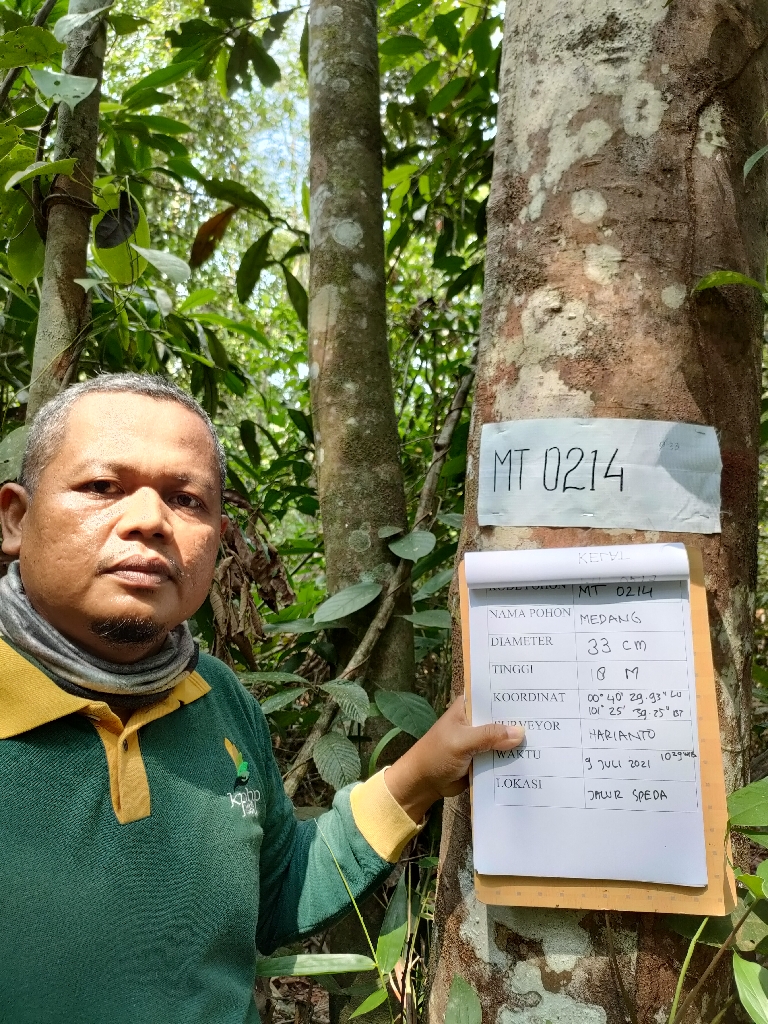 MT 0214
KODE POHON MT 0214
NAMA POHON MEDANG
DIAMETER 33 cm
TINGGI 18 M
KOORDINAT 00° 40' 29.93" LU
101° 25' 39.25" BT
SURVEYOR HARIANTO
WAKTU 9 JULI 2021 10:29 WIB
LOKASI JALUR SPEDA